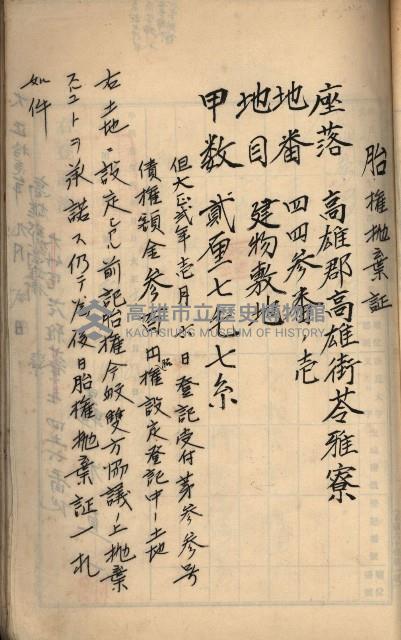 胎権抛棄証
座落 高雄郡高雄街苓雅寮
地番 四四参番ノ壱
地目 建物敷地
甲数 貳厘七毛七糸
但大正貳年壱月 日登記受付第参参号
債権額金参 円胎権設定登記中ノ土地
右土地ニ設定シタル前記胎権今般雙方協議ノ上抛棄
スルコトヲ承諾ス仍テ為後日胎権抛棄証一札
如件
高雄市立歷史博物館
KAOHSIUNG MUSEUM OF HISTORY